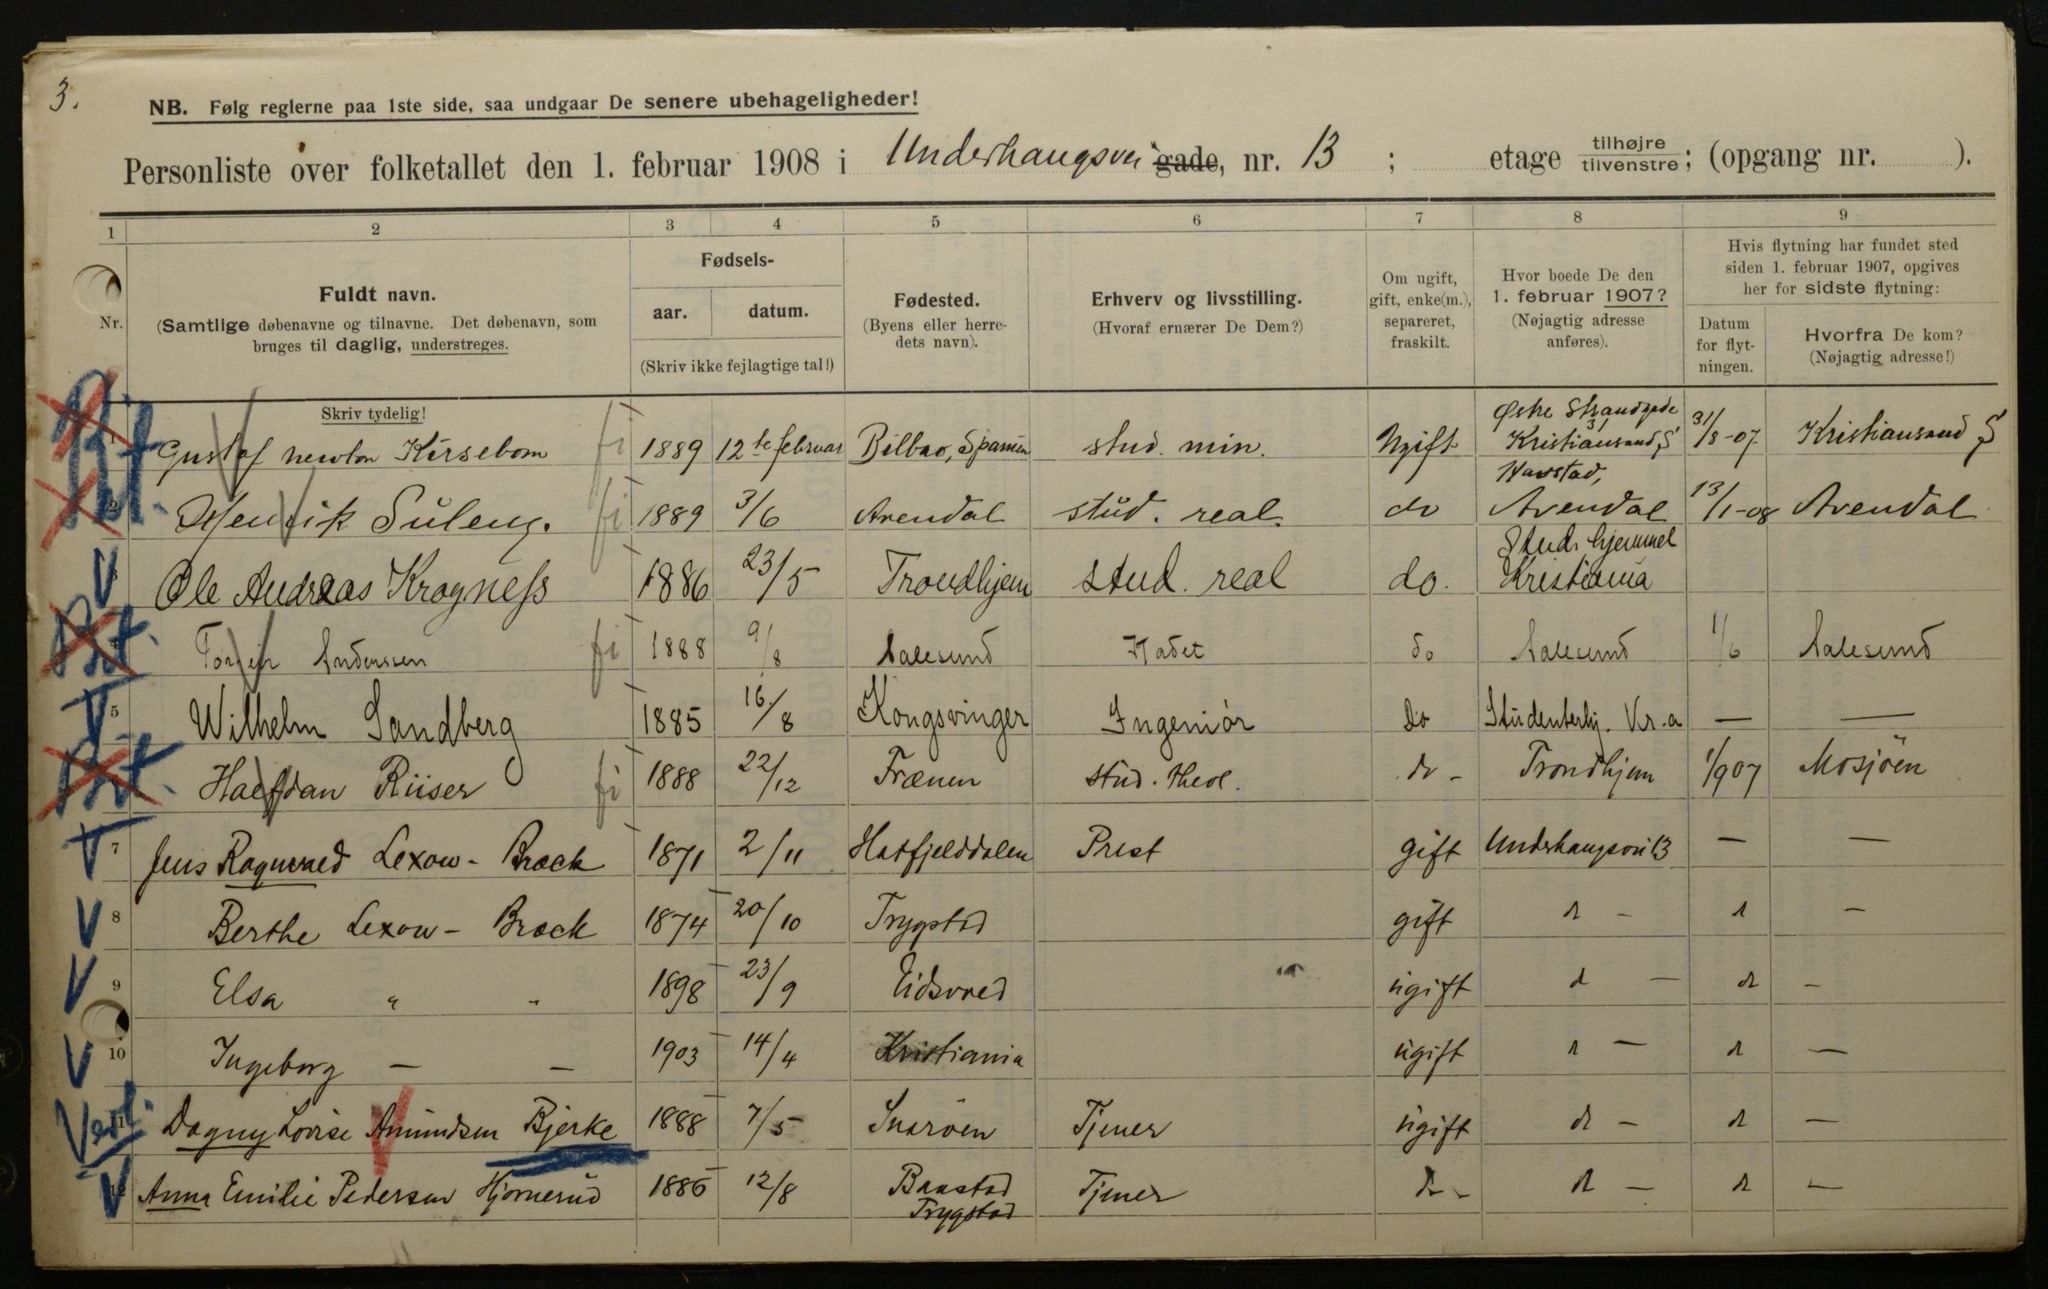 3.
NB. Følg reglerne paa 1ste side, saa undgaar De senere ubehageligheder!
Personliste over folketallet den 1. februar 1908 i Underhaugsvei gade, nr. 13 ; etage tilhøjre tilvenstre; (opgang nr. ).
1 2 3 4 5 6 7 8 9
Nr.
Fuldt navn.
(Samtlige døbenavne og tilnavne. Det døbenavn, som
bruges til daglig, understreges.
Skriv tydelig!
Fødsels-
aar. datum.
(Skriv ikke fejlagtige tal!)
Fødested.
(Byens eller herre-
dets navn).
Erhverv og livsstilling.
(Hvoraf ernærer De Dem?)
Om ugift,
gift, enke(m.),
separeret,
fraskilt.
Hvor boede De den
1. februar 1907?
(Nøjagtig adresse
anføres).
Hvis flytning har fundet sted
siden 1. februar 1907, opgives
her for sidste flytning:
Datum
for flyt-
ningen.
Hvorfra De kom?
(Nøjagtig adresse!)
1 Gustaf newton Kirsebom fi 1889 12te februar Bilbao, Spanien stud. min. Ugift Østre Strandgade 31 Kristiansand S 31/8-07 Kristiansand S
2 Henrik Suleng. fi 1889 3/6 Arendal stud. real. do Arendal 13/1-08 Arendal
3 Ole Andreas Krogness 1886 23/5 Trondhjem stud. real do. Stud. hjemmet Kristiania
4 Anderssen fi 1888 9/8 Aalesund Kadet do Aalesund 1/6 Aalesund
5 Wilhelm Sandberg 1885 16/8 Kongsvinger Ingeniør do Studenterhj. Kr.a — —
Halfdan Riiser fi 1888 22/12 Frænen stud. theol. do - Trondhjem 1/9 07 Mosjöen
7 Jens Ragnvald Lexow - Brock 1871 2/11 Hatfjelddalen Prest gift Underhaugsvei 13 — —
8 Berthe Lexow - Brock 1874 20/10 Trygstad gift d - d —
9 Elsa " " 1898 23/9 Eidsvold ugift d — d —
10 Ingeborg — — 1903 14/4 Kristiania ugift d — d —
11 Dagny Lovise Amundsen Bjerke 1888 7/5 Snarøen Tjener ugift d — d —
12 Anna Emilie Pedersen Hjørnerud 1886 12/8 Baastad Trygstad Tjener d - d — d —